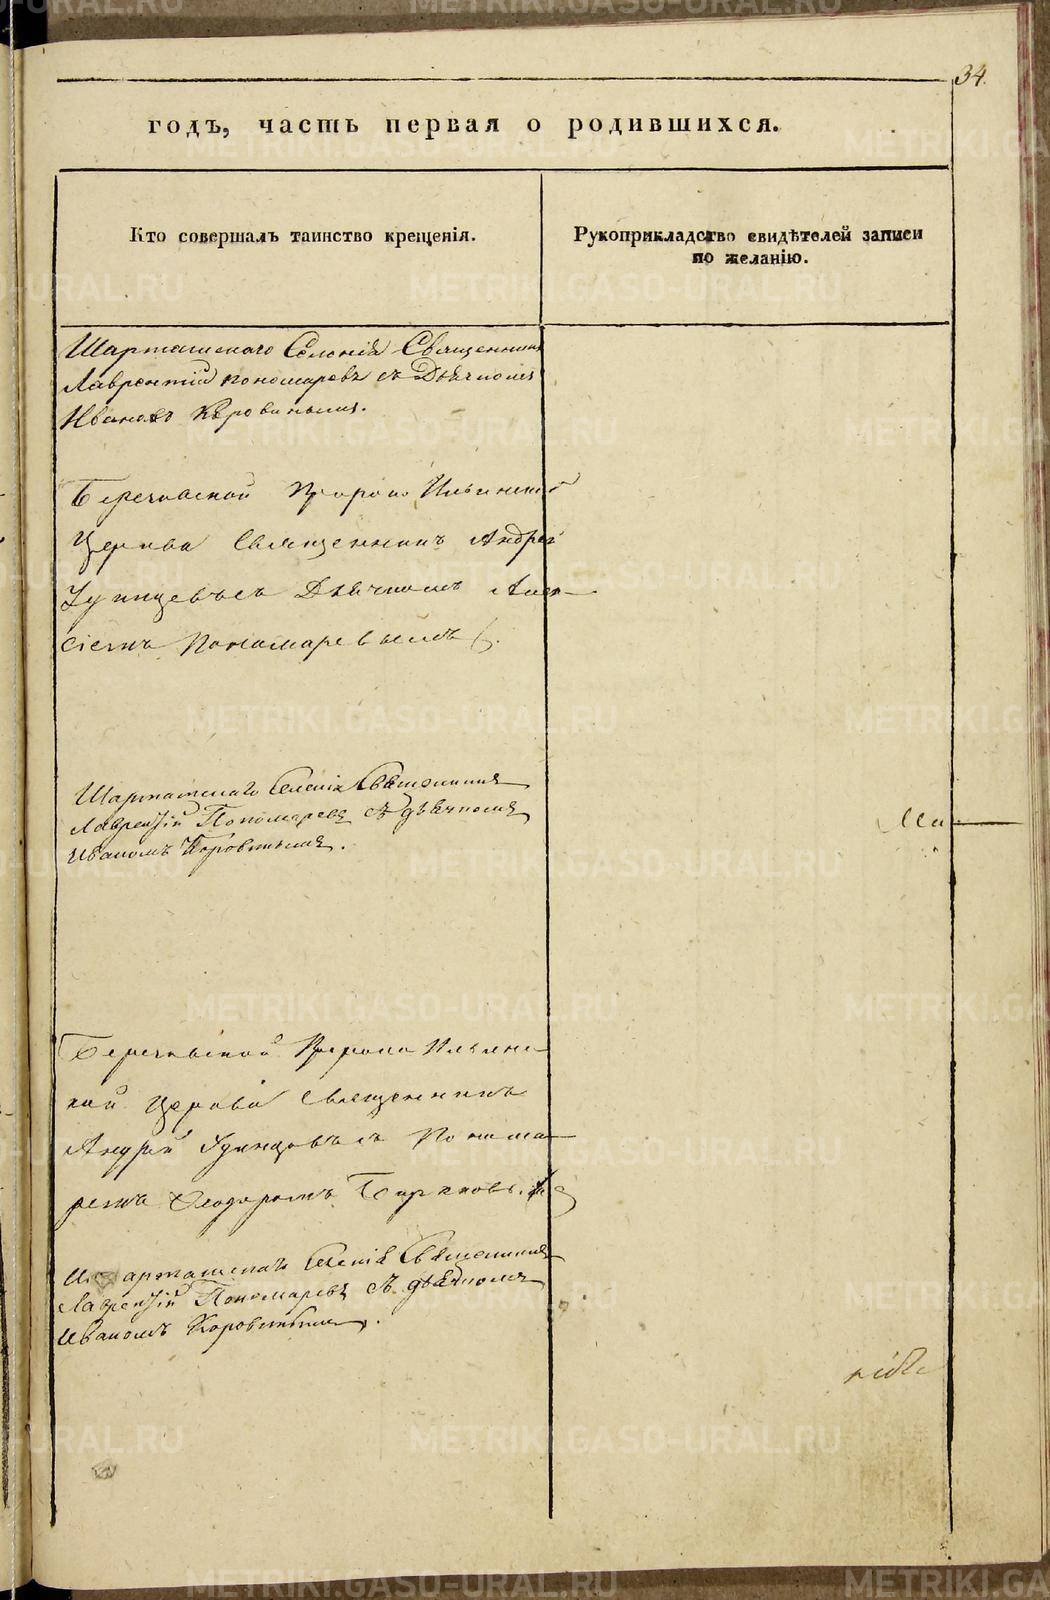 34.
годъ, часть первая о родившихся.
Кто совершалъ таинство крещенія.
Рукоприкладство свидѣтелей записи
по желанію.
Шарташскаго Селенія Священникъ
Лаврентій Пономаревъ съ Дьячкомъ
Иваномъ Коровинымъ.
Пророко Ильинской
Церкви Священникъ Андрей
Удинцевъ съ Дьячкомъ Алек-
сіемъ Пономаревымъ
Шарташскаго Селенія Священникъ
Лаврентій Пономаревъ съ дьячкомъ
Иваномъ Коровинымъ.
Пророко Ильинс-
кой Церкви Священникъ
Андрей Удинцовъ съ Понома-
ремъ Ѳеодоромъ
Шарташскаго Селенія Священникъ
Лаврентій Пономаревъ съ дьячкомъ
Иваномъ Коровинымъ.
METRIKI.GASO-URAL.RU